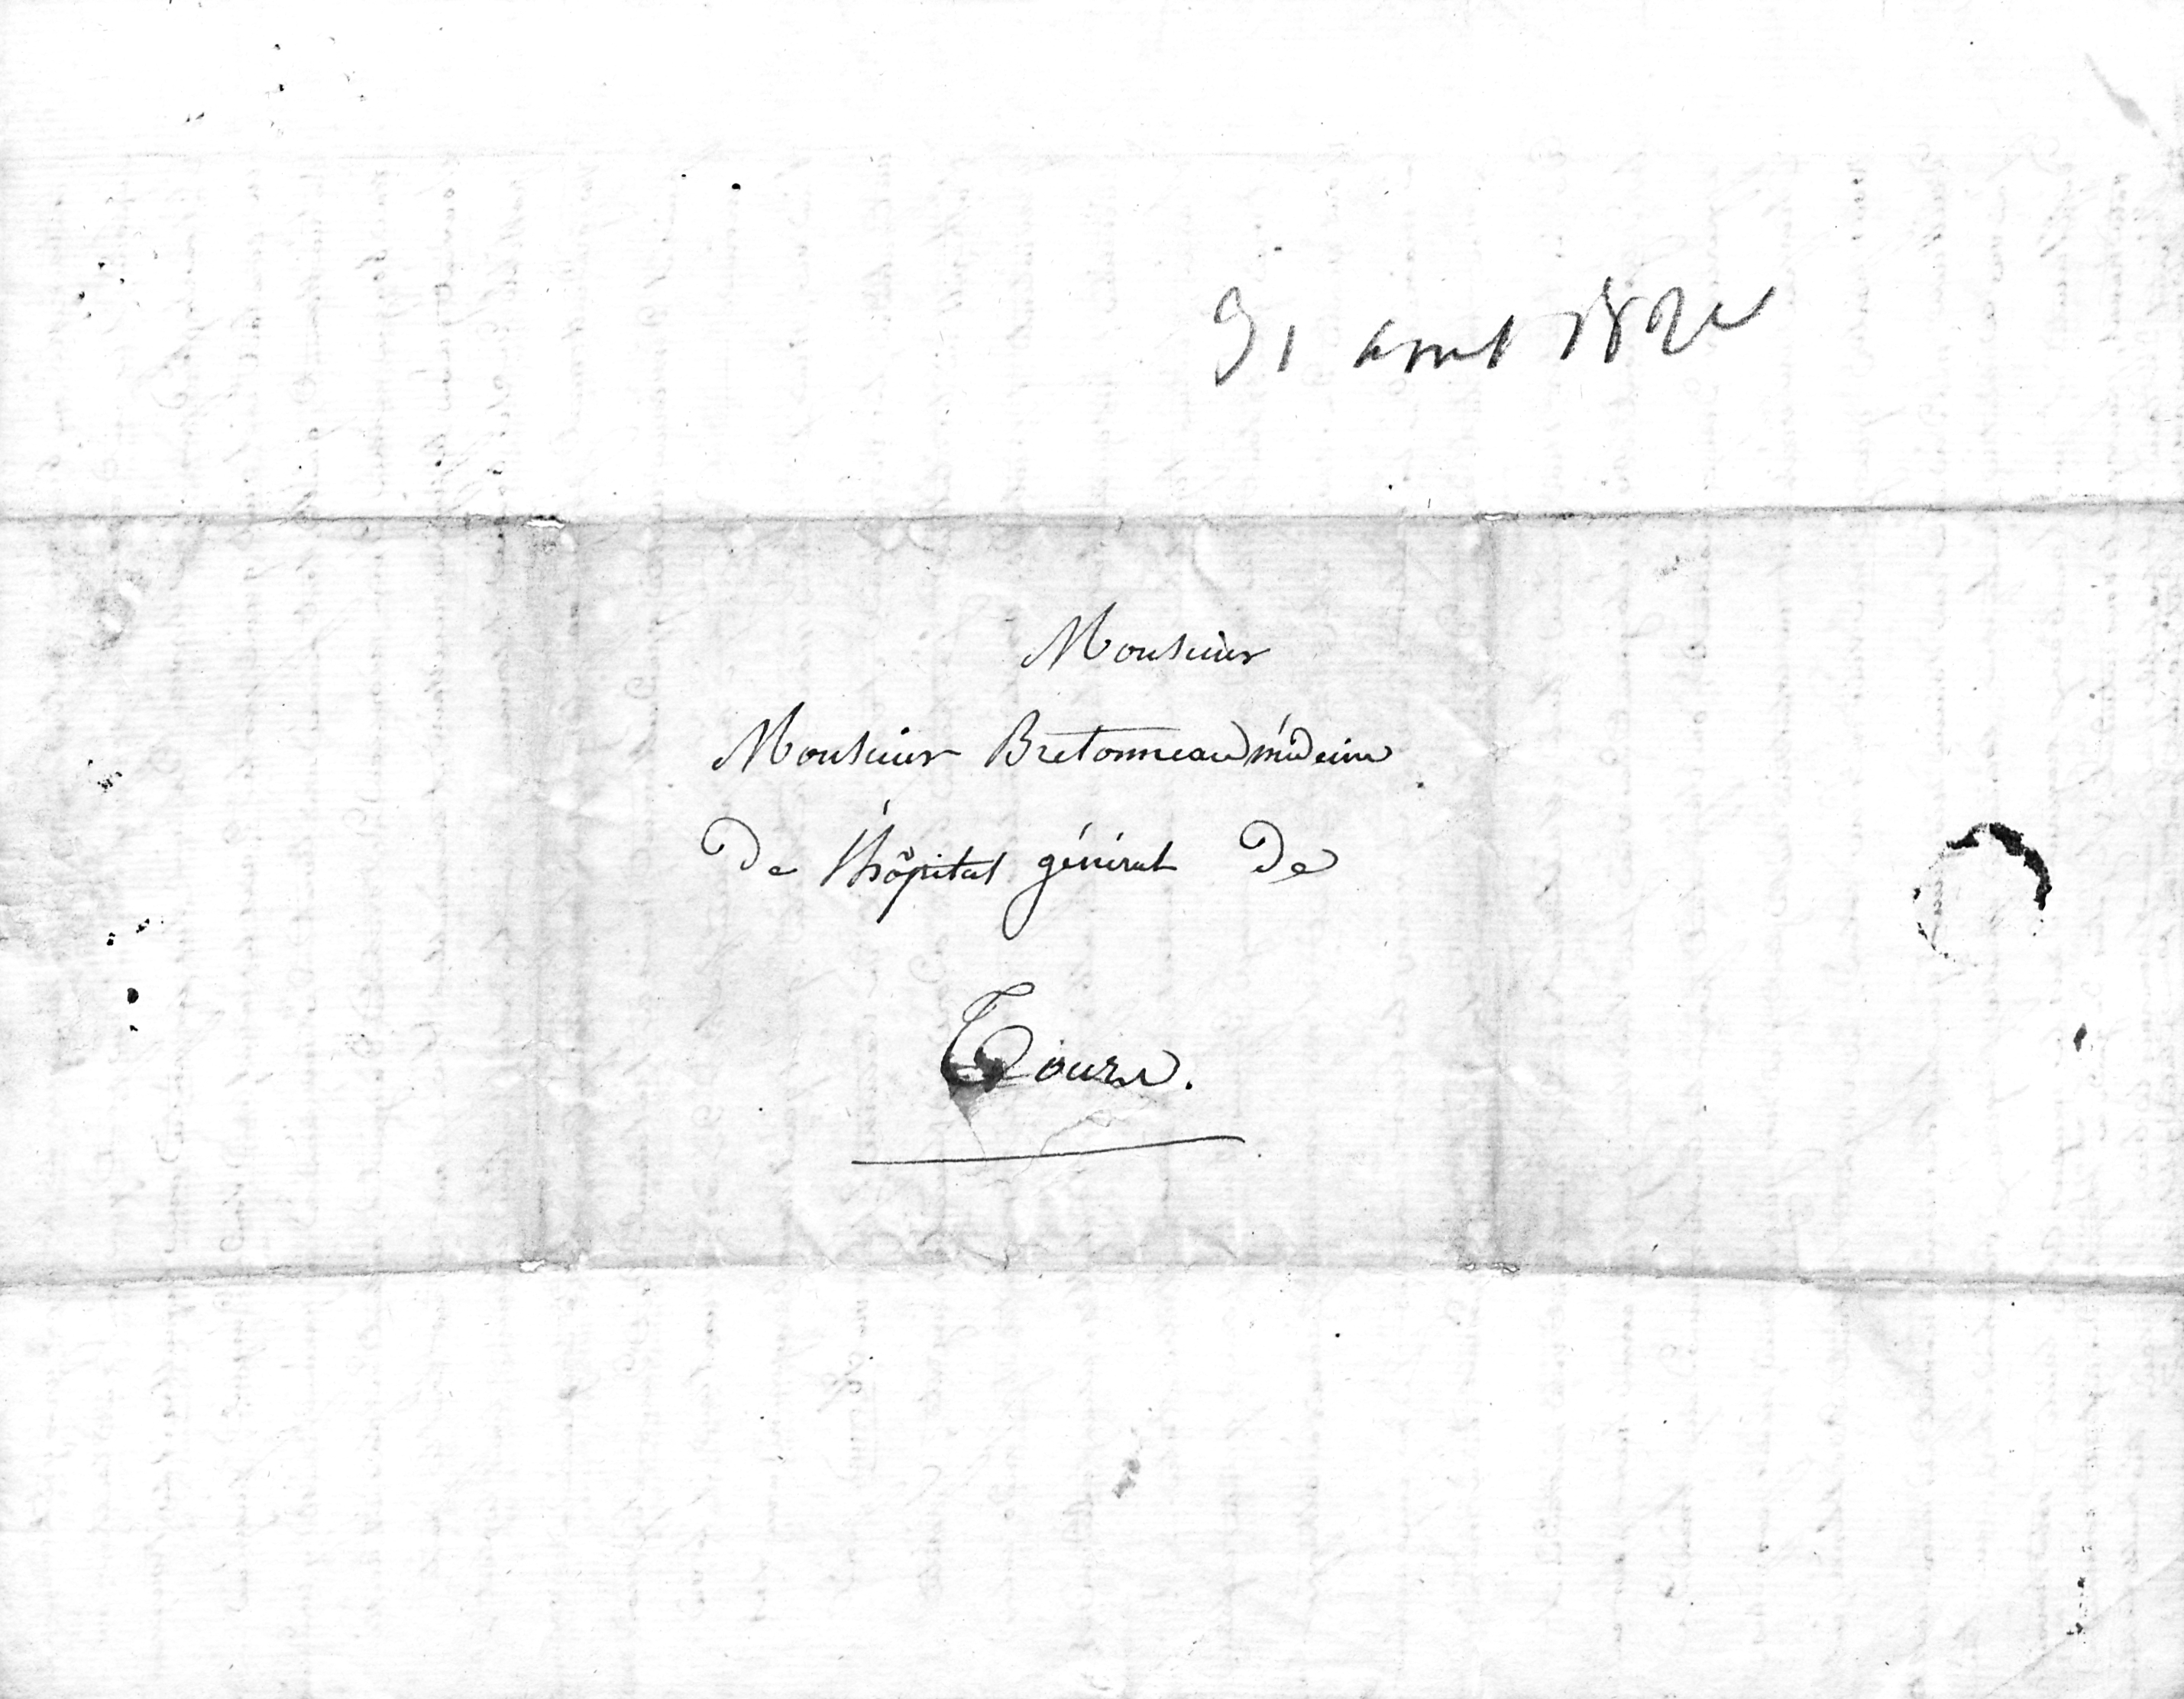 31 aout 182
Monsieur
Monsieur Bretonneau médecin
de l'hôpital général de
Tours.